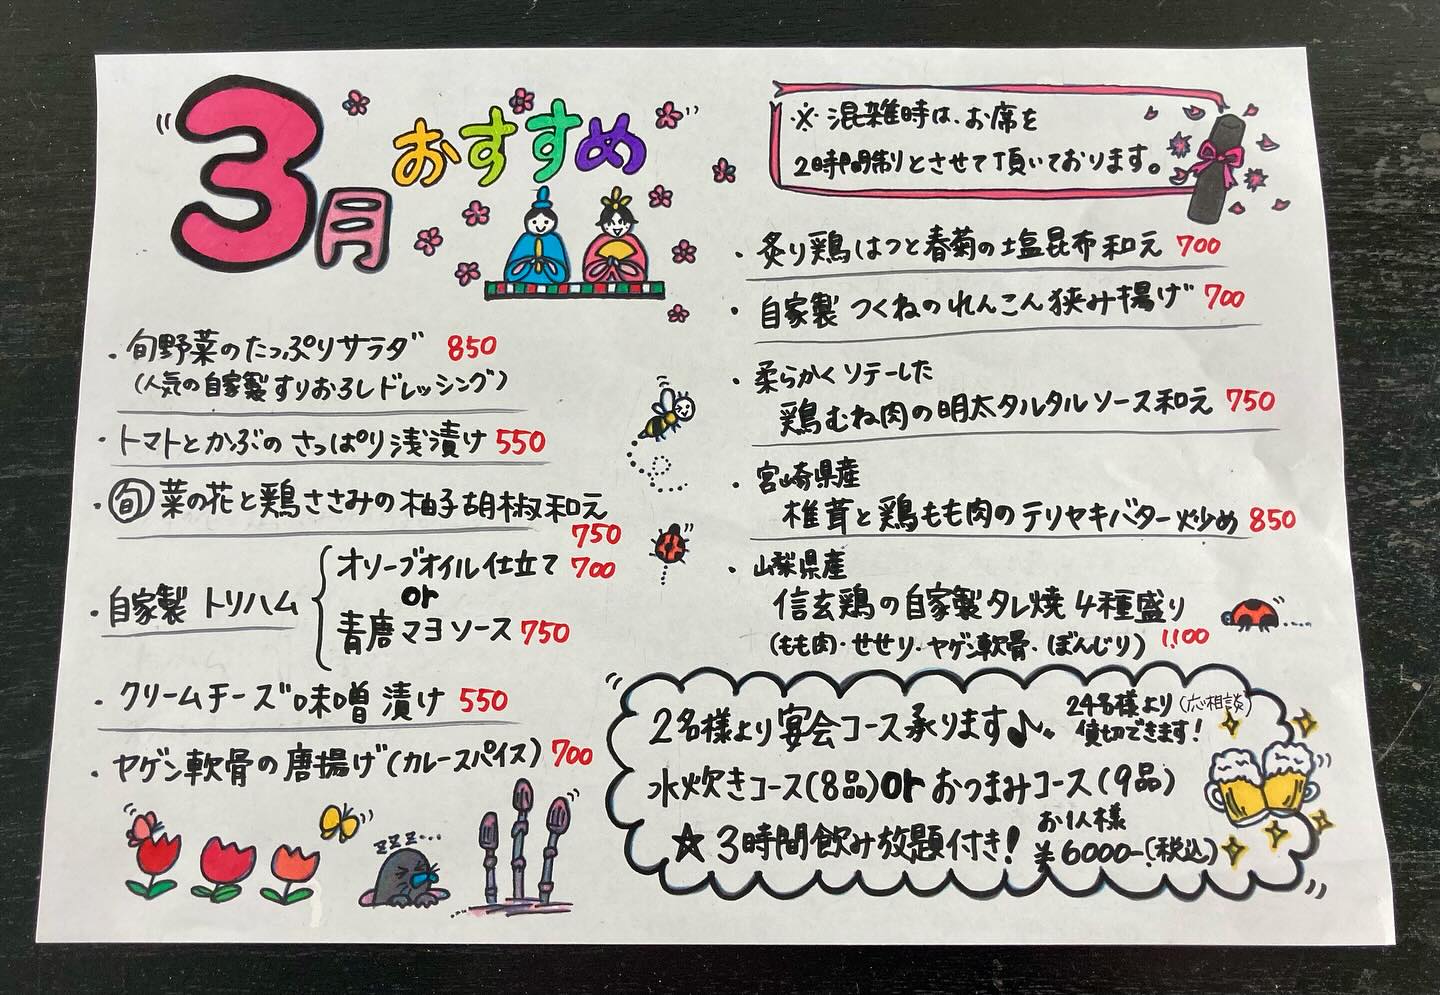 3月 おすすめ
※混雑時は、お席を
2時間制とさせて頂いております。
・旬野菜のたっぷりサラダ 850
(人気の自家製すりおろしドレッシング)
・トマトとかぶのさっぱり浅漬け 550
・旬菜の花と鶏ささみの柚子胡椒和え
750
・自家製トリハム
オリーブオイル仕立て 700
or
青唐マヨソース 750
・クリームチーズ味噌漬け 550
・ヤゲン軟骨の唐揚げ(カレースパイス) 700
ZZZ...
・炙り鶏はつと春菊の塩昆布和え 700
・自家製つくねのれんこん挟み揚げ 700
・柔らかくソテーした
鶏むね肉の明太タルタルソース和え 750
・宮崎県産
椎茸と鶏もも肉のテリヤキバター炒め 850
・山梨県産
信玄鶏の自家製タレ焼 4種盛り
(もも肉・せせり・ヤゲン軟骨・ぼんじり) 1,100
2名様より宴会コース承ります♪
24名様より(応相談)
貸切できます!
水炊きコース(8品)orおつまみコース(9品)
☆3時間飲み放題付き!
お1人様
¥6000-(税込)